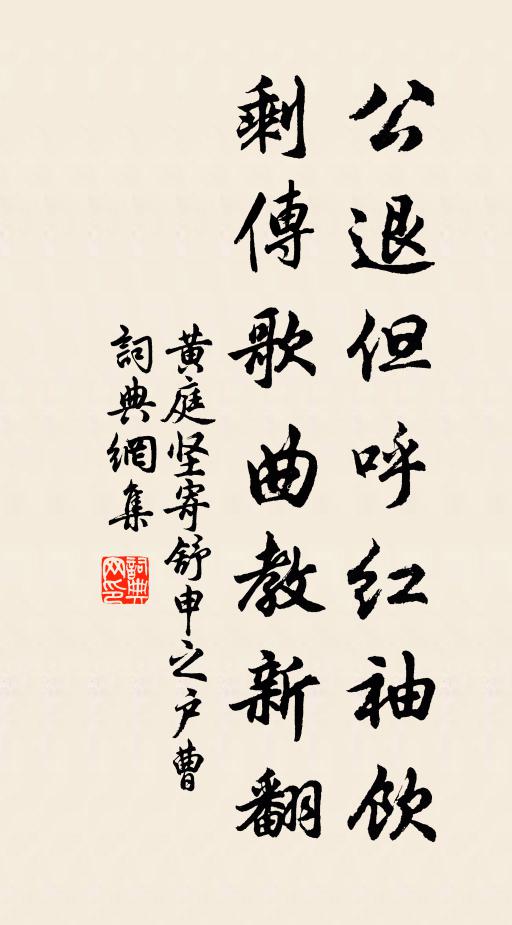 公退但呼红袖饮
剩傳歌曲教新翻
黄庭坚寄舒申之户曹
詞典網集
詞典
网印